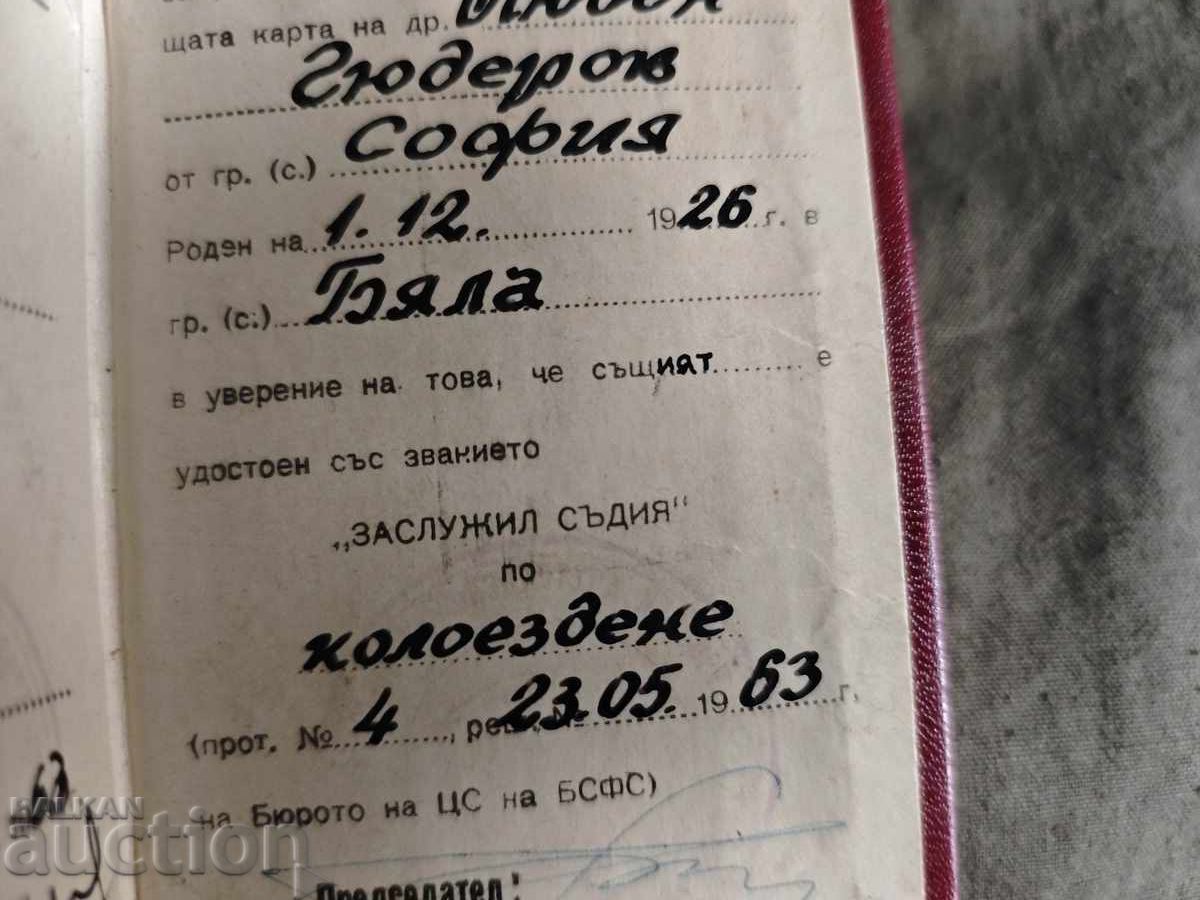 щата карта на др.
Гюдеров
от гр. (с.) София
Роден на 1. 12. 1926 г. в
гр. (с.) Бяла
в уверение на това, че същият е
удостоен със званието
„ЗАСЛУЖИЛ СЪДИЯ“
по
колоездене
(прот. № 4, 23.05. 1963 г.
на Бюрото на ЦС на БСФС)
Председател:
BALKAN
auction